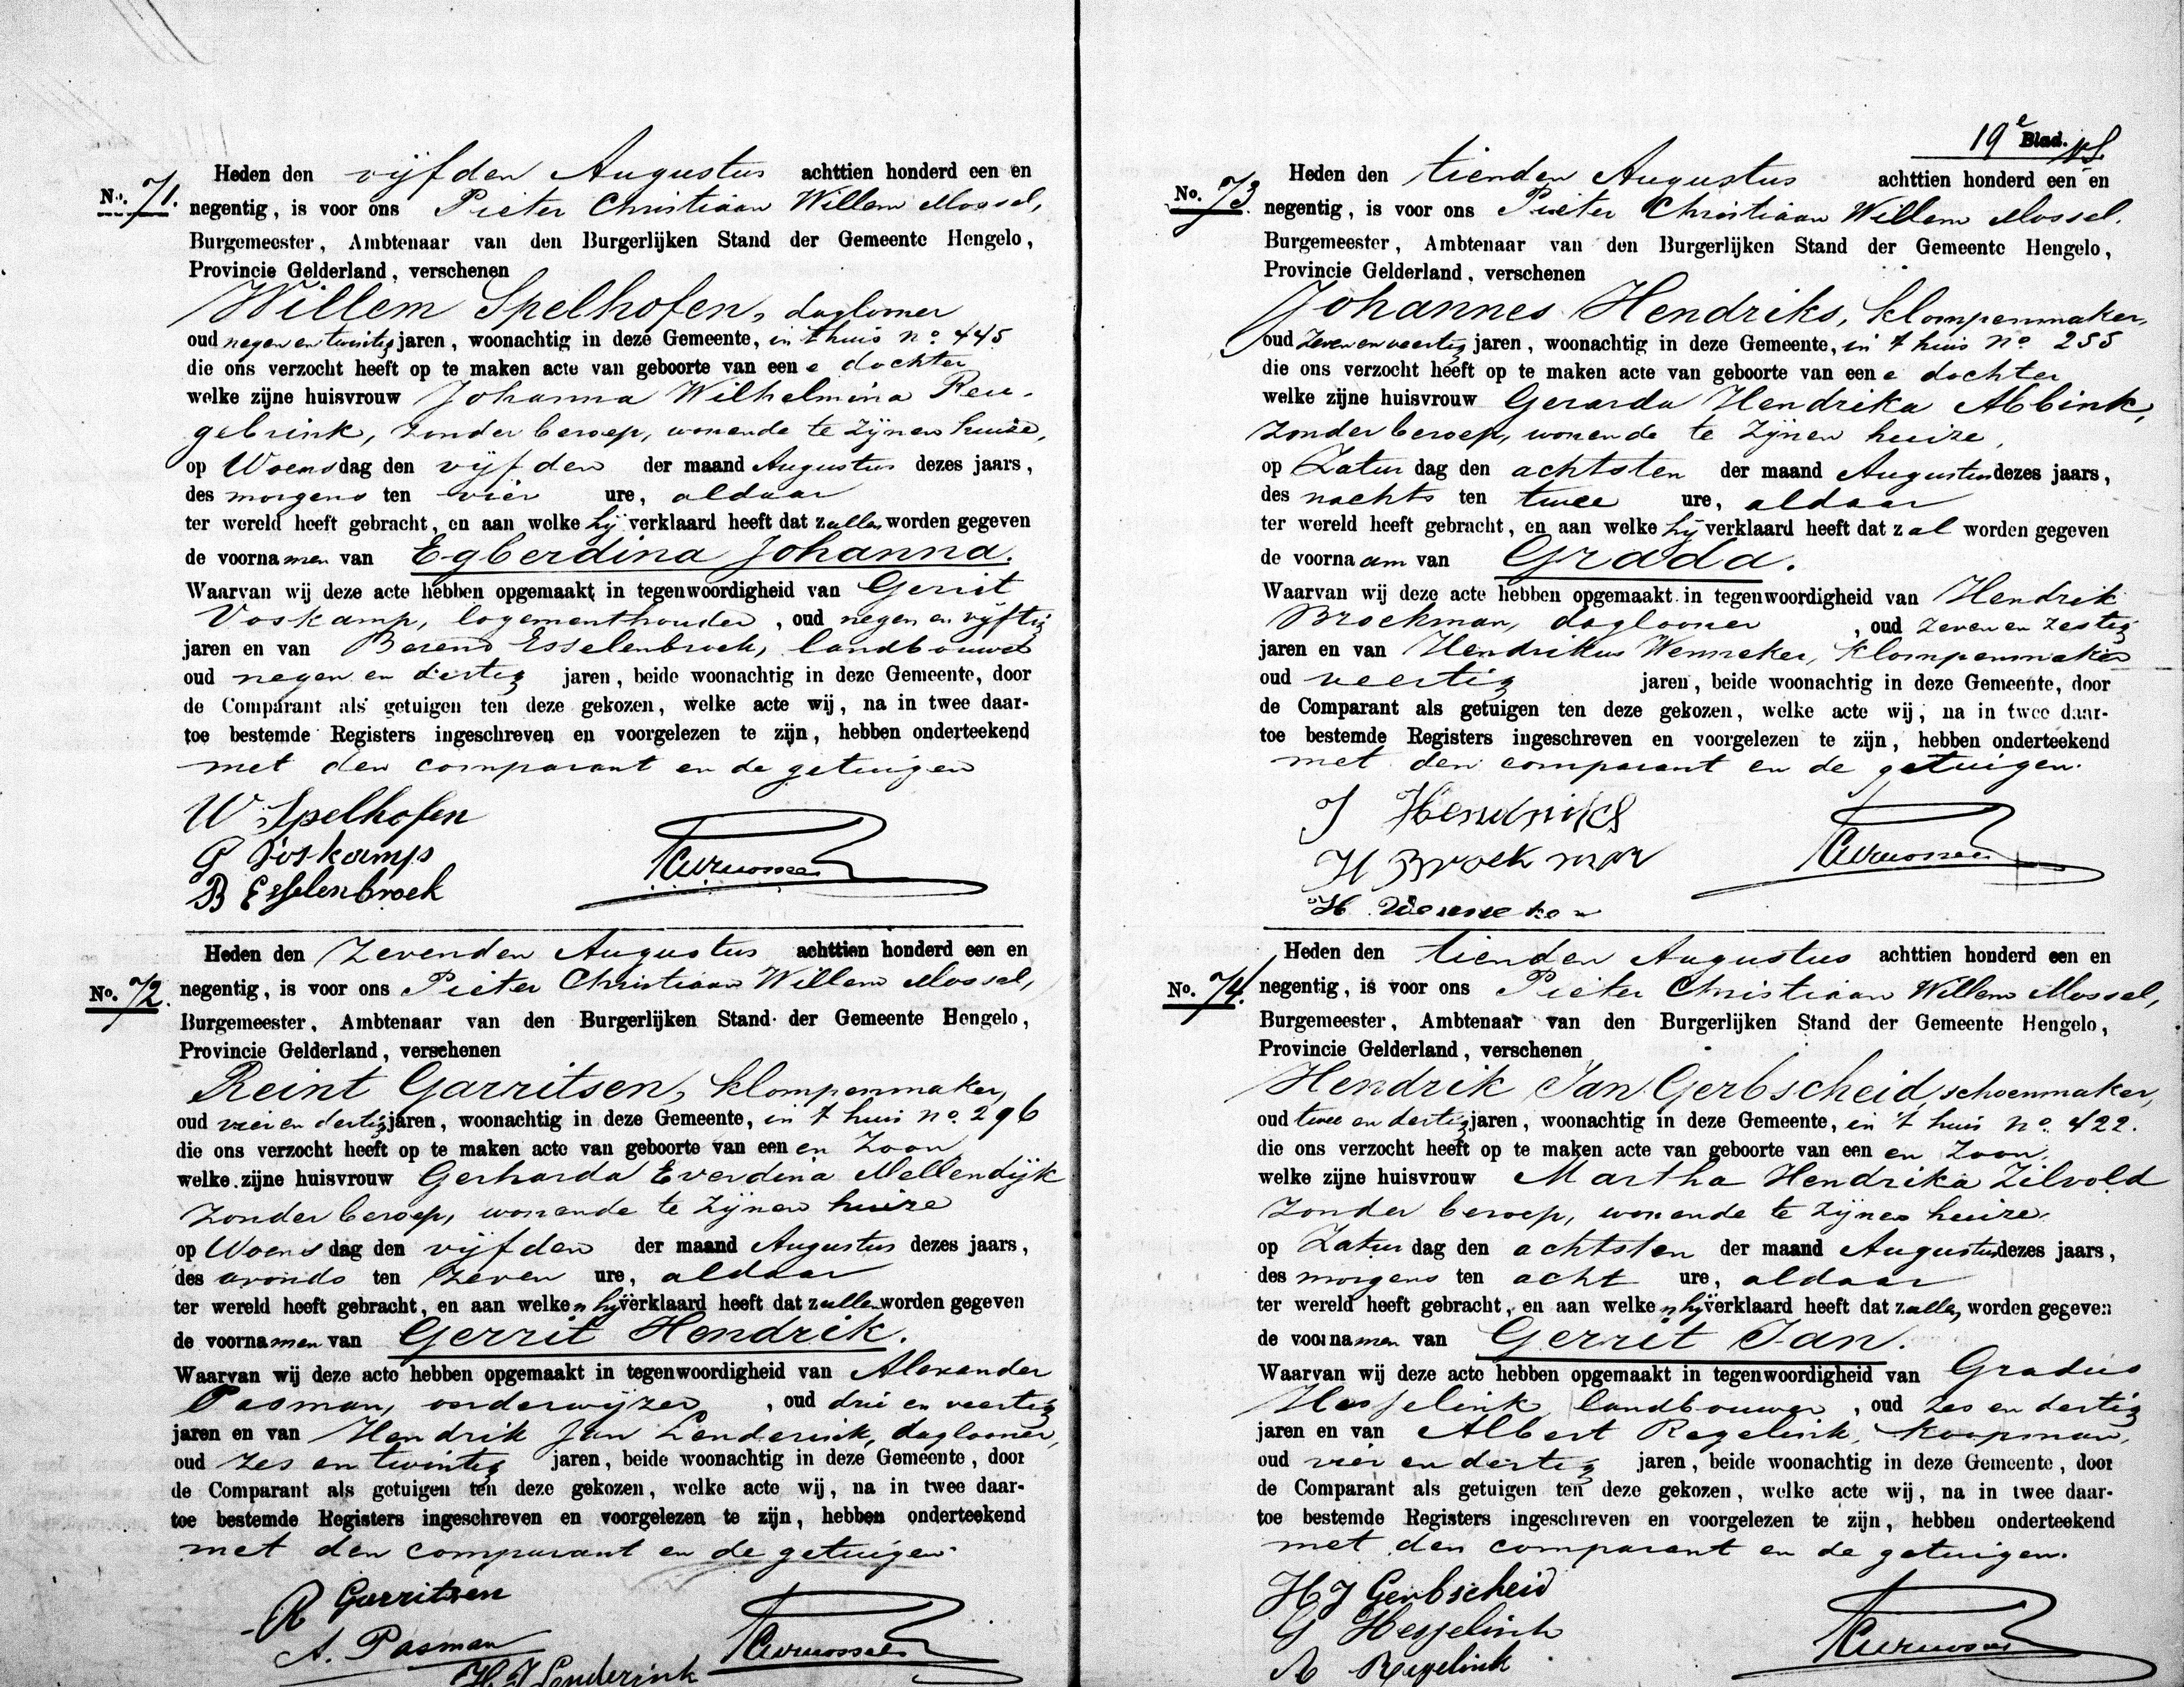 No. 71.
Heden den vijfden Augustus achttien honderd een en
negentig, is voor ons Pieter Christiaan Willem Mossel,
Burgemeester, Ambtenaar van den Burgerlijken Stand der Gemeente Hengelo,
Provincie Gelderland, verschenen
Willem Spelhofen, daglooner
oud negen en twintig jaren, woonachtig in deze Gemeente, in 't huis no. 445
die ons verzocht heeft op te maken acte van geboorte van eene dochter
welke zijne huisvrouw Johanna Wilhelmina Reu-
gebrink, zonder beroep, wonende te zijnen huize,
op Woensdag den vijfden der maand Augustus dezes jaars,
des morgens ten vier ure, aldaar
ter wereld heeft gebracht, en aan welke hij verklaard heeft dat zullen worden gegeven
de voornamen van Egberdina Johanna.
Waarvan wij deze acte hebben opgemaakt in tegenwoordigheid van Gerrit
Voskamp, logementhouder, oud negen en vijftig
jaren en van Berend Esselenbroek, landbouwer
oud negen en dertig jaren, beide woonachtig in deze Gemeente, door
de Comparant als getuigen ten deze gekozen, welke acte wij, na in twee daar-
toe bestemde Registers ingeschreven en voorgelezen te zijn, hebben onderteekend
met den comparant en de getuigen
W Spelhofen
G Voskamp
B Esselenbroek
No. 72.
Heden den zevenden Augustus achttien honderd een en
negentig, is voor ons Pieter Christiaan Willem Mossel,
Burgemeester, Ambtenaar van den Burgerlijken Stand der Gemeente Hengelo,
Provincie Gelderland, verschenen
Reint Garritsen, klompenmaker,
oud vier en dertig jaren, woonachtig in deze Gemeente, in 't huis no. 296
die ons verzocht heeft op te maken acte van geboorte van een en zoon
welke zijne huisvrouw Gerharda Everdina Mellendijk
zonder beroep, wonende te zijnen huize
op Woensdag den vijfden der maand Augustus dezes jaars,
des avonds ten zeven ure, aldaar
ter wereld heeft gebracht, en aan welken hij verklaard heeft dat zullen worden gegeven
de voornamen van Gerrit Hendrik.
Waarvan wij deze acte hebben opgemaakt in tegenwoordigheid van Alexander
Pasman, onderwijzer, oud drie en veertig
jaren en van Hendrik Jan Lenderink, daglooner,
oud zes en twintig jaren, beide woonachtig in deze Gemeente, door
de Comparant als getuigen ten deze gekozen, welke acte wij, na in twee daar-
toe bestemde Registers ingeschreven en voorgelezen te zijn, hebben onderteekend
met den comparant en de getuigen.
R Garritsen
A. Pasman
H J Lenderink
19e Blad.
No. 73.
Heden den tienden Augustus achttien honderd een en
negentig, is voor ons Pieter Christiaan Willem Mossel.
Burgemeester, Ambtenaar van den Burgerlijken Stand der Gemeente Hengelo,
Provincie Gelderland, verschenen
Johannes Hendriks, klompenmaker,
oud zeven en veertig jaren, woonachtig in deze Gemeente, in 't huis no. 255
die ons verzocht heeft op te maken acte van geboorte van eene dochter
welke zijne huisvrouw Gerarda Hendrika Abbink,
zonder beroep, wonende te zijnen huize,
op Zaturdag den achtsten der maand Augustus dezes jaars,
des nachts ten twee ure, aldaar
ter wereld heeft gebracht, en aan welke hij verklaard heeft dat zal worden gegeven
de voornaam van Grada.
Waarvan wij deze acte hebben opgemaakt in tegenwoordigheid van Hendrik
Broekman, daglooner, oud zeven en zestig
jaren en van Hendrikus Wenneker, klompenmaker
oud veertig jaren, beide woonachtig in deze Gemeente, door
de Comparant als getuigen ten deze gekozen, welke acte wij, na in twee daar-
toe bestemde Registers ingeschreven en voorgelezen te zijn, hebben onderteekend
met den comparant en de getuigen.
J Hendriks
H Broekman
H Wenneker
No. 74.
Heden den tienden Augustus achttien honderd een en
negentig, is voor ons Pieter Christiaan Willem Mossel,
Burgemeester, Ambtenaar van den Burgerlijken Stand der Gemeente Hengelo,
Provincie Gelderland, verschenen
Hendrik Jan Gerbscheid, schoenmaker,
oud twee en dertig jaren, woonachtig in deze Gemeente, in 't huis no. 422.
die ons verzocht heeft op te maken acte van geboorte van een en zoon
welke zijne huisvrouw Martha Hendrika Zilvold
zonder beroep, wonende te zijnen huize.
op Zaturdag den achtsten der maand Augustus dezes jaars,
des morgens ten acht ure, aldaar
ter wereld heeft gebracht, en aan welken hij verklaard heeft dat zullen worden gegeven
de voornamen van Gerrit Jan.
Waarvan wij deze acte hebben opgemaakt in tegenwoordigheid van Gradus
Hesselink landbouwer, oud zes en dertig
jaren en van Albert Regelink, koopman,
oud vier en dertig jaren, beide woonachtig in deze Gemeente, door
de Comparant als getuigen ten deze gekozen, welke acte wij, na in twee daar-
toe bestemde Registers ingeschreven en voorgelezen te zijn, hebben onderteekend
met den comparant en de getuigen.
H J Gerbscheid
G Hesselink
A Regelink